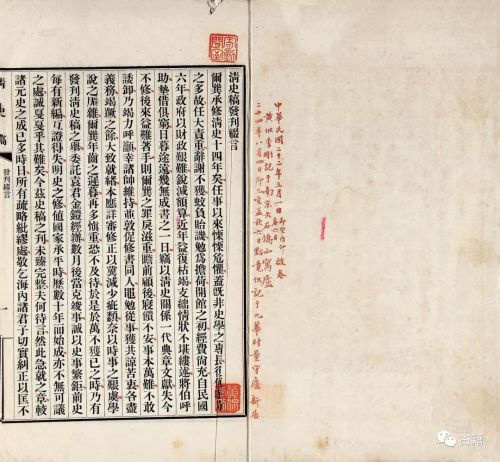 中華民國二十二年三月一日
清史稿發刊綴言
爾巽承修清史十四年矣任事以來慄慄危懼蓋既非史學之專長復值時局
之多故任大責重辭謝不獲蚊負貽譏勉為擔荷開館之初經費尚充自民國
六年政府以財政艱難銳減額算近年益復枯竭支絀情狀不堪縷述將伯呼
助墊借俱窮日暮途遠幾無成書之一日竊以清史關係一代典章文獻失今
不修後來益難著手則爾巽之罪戾滋重瞻前顧後寢饋不安事本萬難不敢
諉卸乃竭力呼籲幸諸帥維持並敦促修書同人黽勉從事獲共諒苦衷各盡
義務竭蹶之餘大致就緒本應詳審修正以冀減少疵纇奈以時事之艱虞學
說之厖雜爾巽年齒之遲暮再多慎重恐不及待於是於萬不獲已之時乃有
發刊清史稿之舉委託袁君金鎧經辦數月後當克竣事誠以史事繁鉅前史
每有新編互證得失明史之修值國家承平時歷數十年而始成亦不無可議
之處誠戛戛乎其難矣今茲史稿之刊未臻完整夫何待言然此急就之章較
諸元史之成已多時日所有疏略紕繆處敬乞海內諸君子切實糾正以匡不
清史稿
發刊綴言
古籍